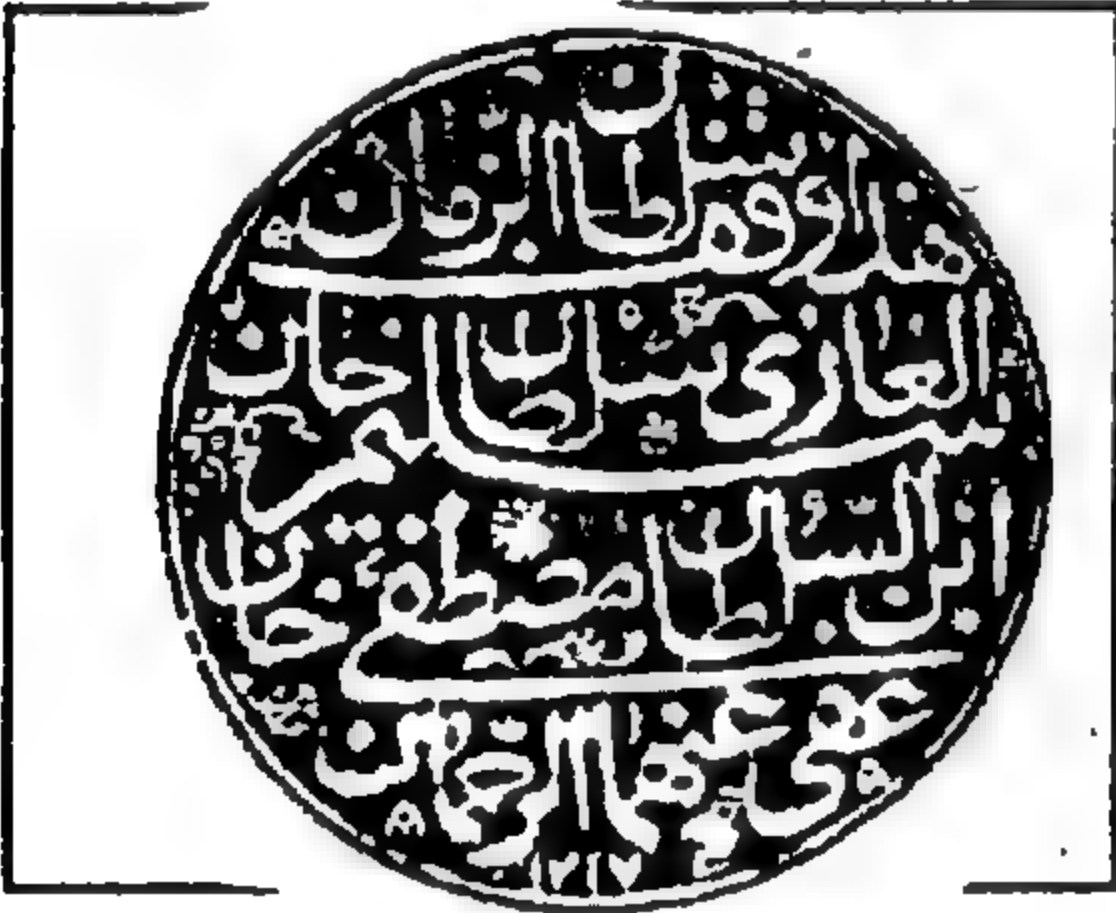 هذا وقف سلطان الزمان
الغازي سلطان سليم خان
بن السلطان مصطفى خان
عفى عنهما الرحمن
١٢١٧